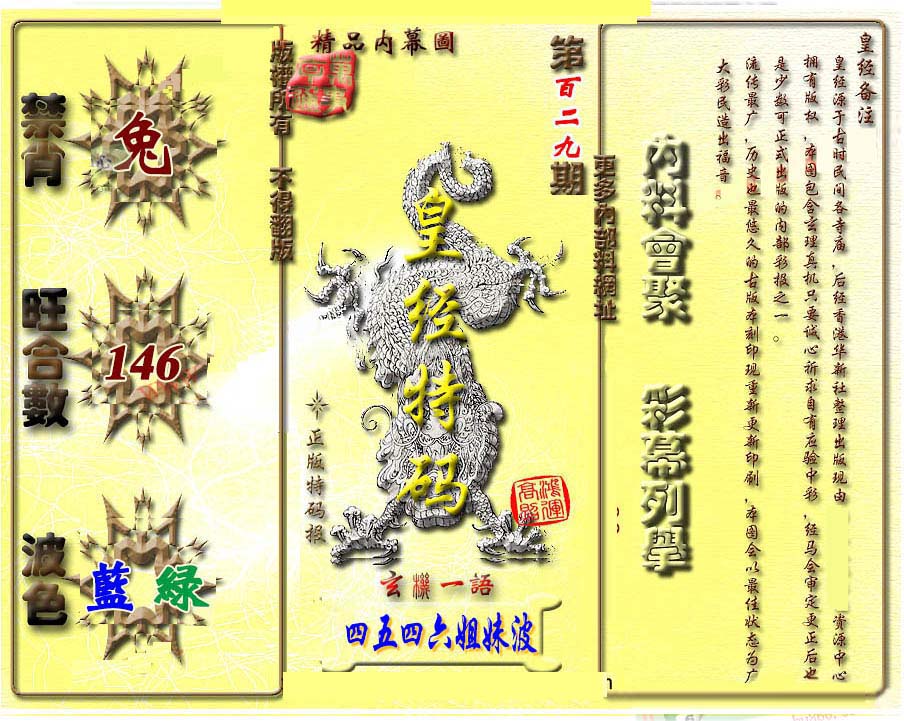 精品内幕圖
第百二九期
版權所有 不得翻版
禁肖
兔
旺合數
146
波色
藍 綠
皇经特码
正版特码报
鴻運高照
玄機一語
四五四六姐妹波
更多內部料網址
内料會聚
彩幕列舉
皇经备注
皇经源于古时民间各寺庙,后经香港华新社整理出版现由 资源中心
拥有版权,本图包含玄理真机只要诚心祈求自有应验中彩,经马会审定更正后也
是少数可正式出版的内部彩报之一。
流传最广,历史也最悠久的古版本刻印现重新更新印刷,本图会以最佳状态为广
大彩民造出福音